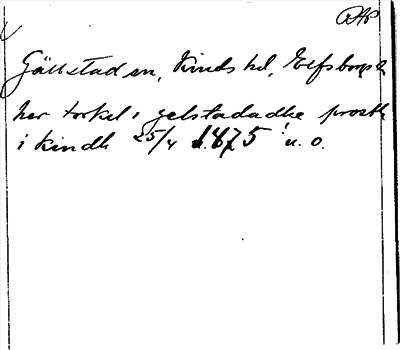 RAP
Gällstad sn, Kinds hd, Elfsborgs l.
her torkel i gelstadadhe prosth
i kindh 25/4 1475 u. o.